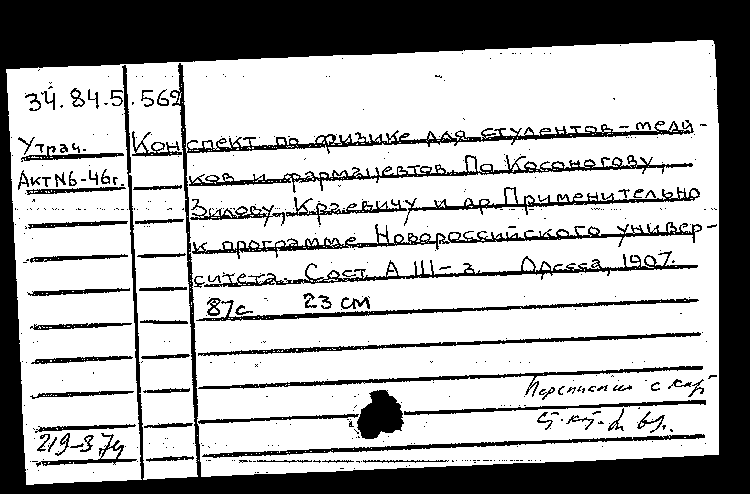 34.84.5 562
Утрач. Конспект по физике для студентов-меди-
Акт №6-46г. ков и фармацевтов. По Косоногову,
Зилову, Краевичу и др. Применительно
к программе Новороссийского универ-
ситета. Сост. А Ш-з. Одесса, 1907.
87с 23 см
Переписана с кар
219-874